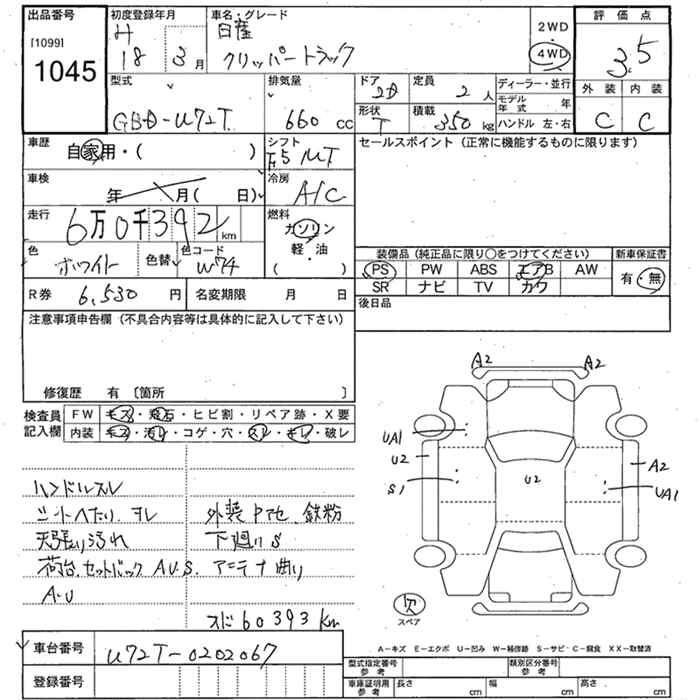 出品番号
[1099]
1045
初度登録年月
H
18 3月
車名・グレード
日産
クリッパートラック
2WD
4WD
評価点
3.5
外装 内装
C C
型式
GBD-U72T
排気量
660 cc
ドア 2D
定員 2人
形状 T
積載 350 kg
ディーラー・並行
モデル年式 年
ハンドル 左・右
車歴 自家用・( )
シフト F5 MT
車検 年 月( 日)
冷房 A/C
走行 6万0千392 km
燃料 ガソリン
軽・油
( )
色 ホワイト
色替
色コード W74
R券 6,530円
名変期限 月 日
セールスポイント(正常に機能するものに限ります)
装備品(純正品に限り〇をつけてください)
新車保証書
PS PW ABS エアB AW
SR ナビ TV カワ
有・無
後日品
注意事項申告欄(不具合内容等は具体的に記入して下さい)
修復歴 有〔箇所 〕
検査員記入欄
FW キズ・飛石・ヒビ割・リペア跡・X要
内装 キズ・汚れ・コゲ・穴・スレ・キレ・破レ
ハンドルスレ
シートヘたり、ヨレ
天張り汚れ
荷台、セットバックAUS、アンテナ曲り
A・U
外装Pマセ、鉄粉
下廻りS
スド60393km
A2 A2
UA1
U2
S1
U2
A2
UA1
欠
スペア
A-キズ E-エクボ U-凹み W-補修跡 S-サビ・C-腐食 XX-取替済
車台番号 U72T-0202067
登録番号
型式指定番号 参考
類別区分番号 参考
車庫証明用 参考
長さ cm 幅 cm 高さ cm